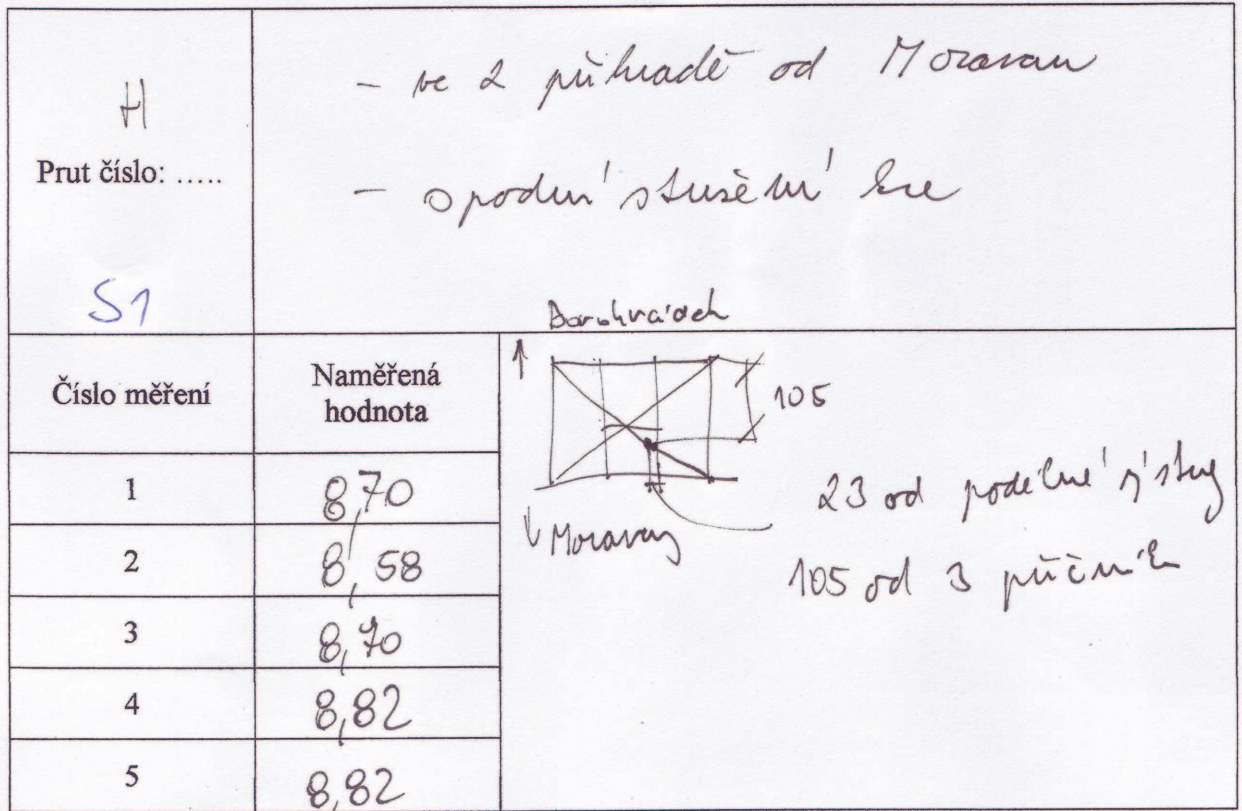 H
Prut číslo: .....
S1
- ve 2 příhradě od Moravan
- spodní ztužení
Číslo měření
Naměřená
hodnota
1
8,70
2
8,58
3
8,70
4
8,82
5
8,82
105
↑
↓ Moravany
23 od podélné výztuhy
105 od 3 příčníku